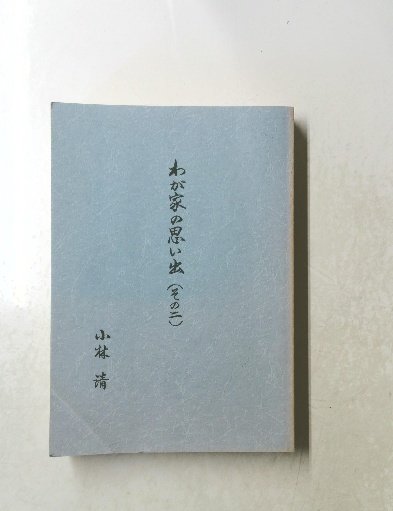 わが家の思い出(その二)
小林 清